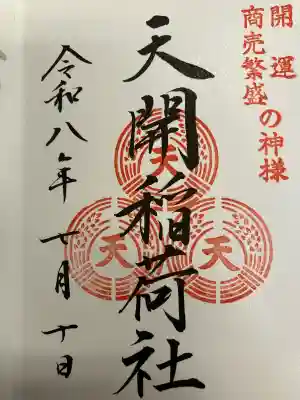 開運
商売繁盛の神様
天開稲荷社
天
天
天
令和八年
十日